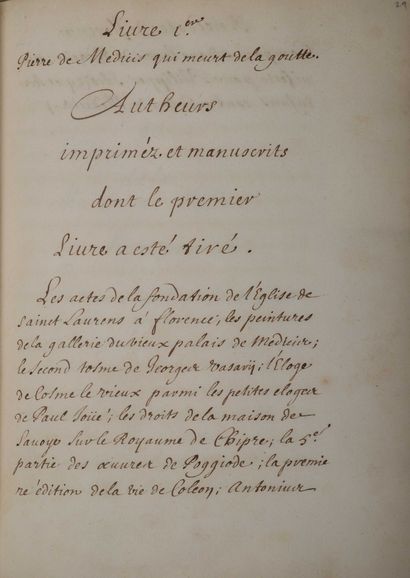 29
Livre 1.er
Pierre de Medicis qui meurt de la goutte.
Autheurs
impriméz et manuscrits
dont le premier
Livre a esté tiré.
Les actes de la fondation de l'Eglise de
sainct Laurens à florence, les peintures
de la gallerie du vieux palais de Medicis;
le second tosme de Georges Vasarij; l'Eloge
de Cosme le vieux parmi les petites eloges
de Paul Joüe; les droits de la maison de
Savoye sur le Royaume de Chipre; la 5.e
partie des œuvres de Poggiode; la premie
re édition de la vie de Coleon; Antonius